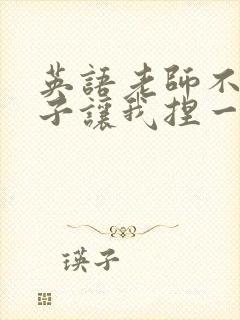 英語老師不
子讓我捏一
瑛子